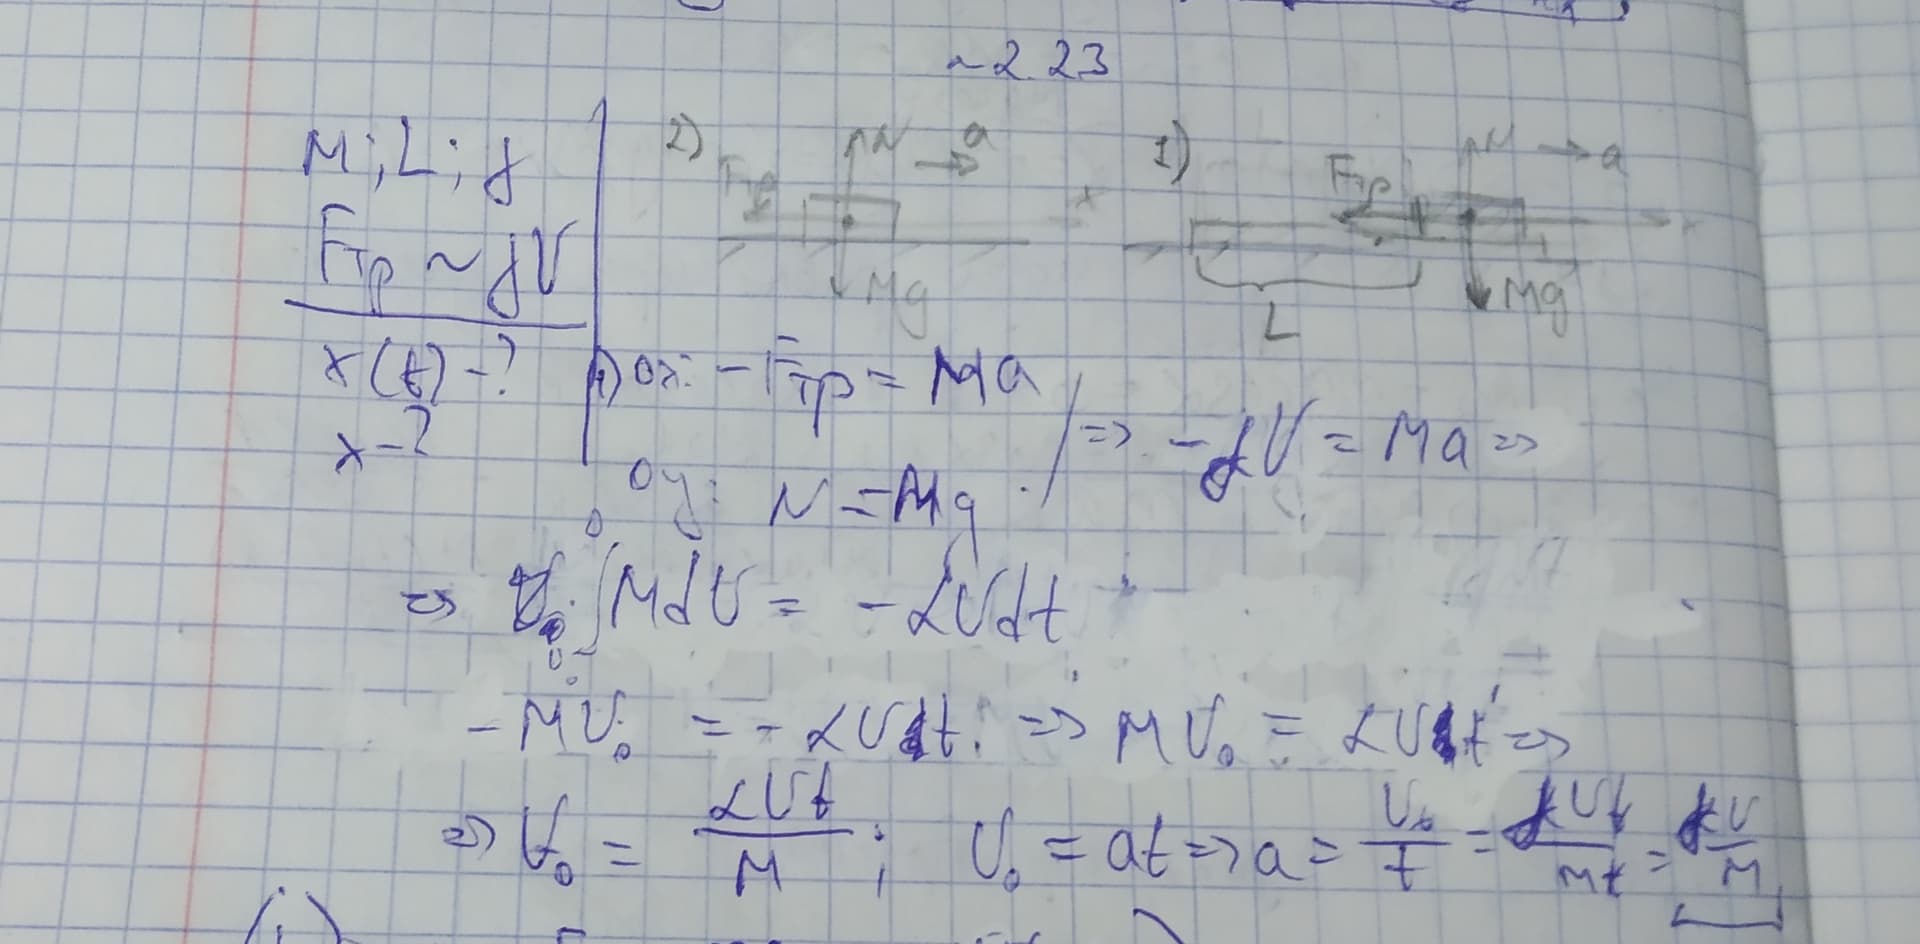 ~2.23
M; L; γ
Fтр ~ γV
x(t) - ?
x - ?
2) N a Fтр x Mg
1) N a Fтр x Mg L
1) ox: - Fтр = Ma
oy: N = Mg
=> - αV = Ma =>
=> V₀ ∫ MdV = - αVdt
0
- MV₀ = - αVt => MV₀ = αVt =>
=> V₀ = αVt / M ; V₀ = at => a = V₀ / t = αVt / Mt = αV / M